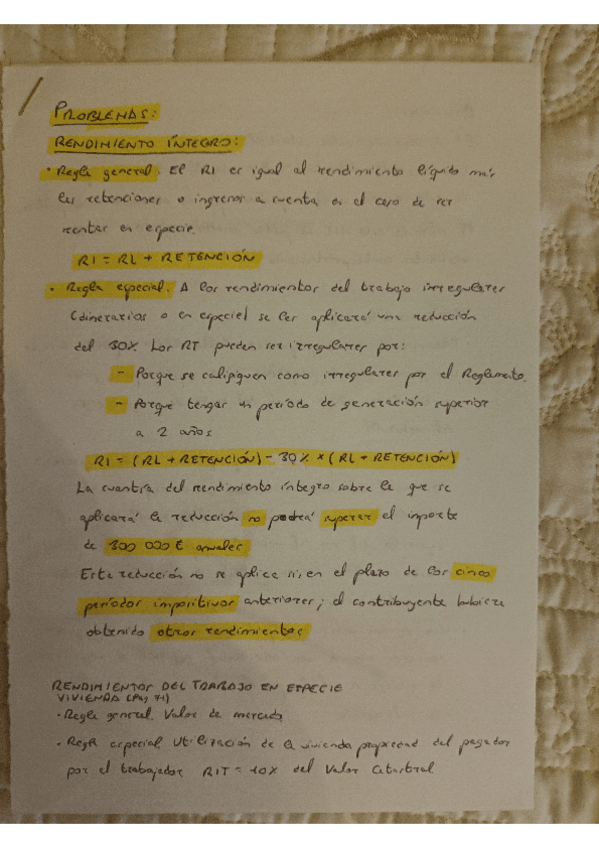 PROBLEMAS:
RENDIMIENTO ÍNTEGRO:
• Regla general. El RI es igual al rendimiento líquido más
las retenciones o ingresos a cuenta en el caso de ser
rentas en especie.
RI = RL + RETENCIÓN
• Regla especial. A los rendimientos del trabajo irregulares
(dinerarios o en especie) se les aplicará una reducción
del 30%. Los RT pueden ser irregulares por:
- Porque se califiquen como irregulares por el Reglamento.
- Porque tengan un período de generación superior
a 2 años
RI = (RL + RETENCIÓN) - 30% * (RL + RETENCIÓN)
La cuantía del rendimiento íntegro sobre la que se
aplicará la reducción no podrá superar el importe
de 300 000 € anuales
Esta reducción no se aplica si, en el plazo de los cinco
períodos impositivos anteriores, el contribuyente hubiera
obtenido otros rendimientos
RENDIMIENTOS DEL TRABAJO EN ESPECIE
VIVIENDA (Pág 71)
• Regla general. Valor de mercado
• Regla especial. Utilización de la vivienda propiedad del pagador
por el trabajador RIT = 10% del Valor Catastral